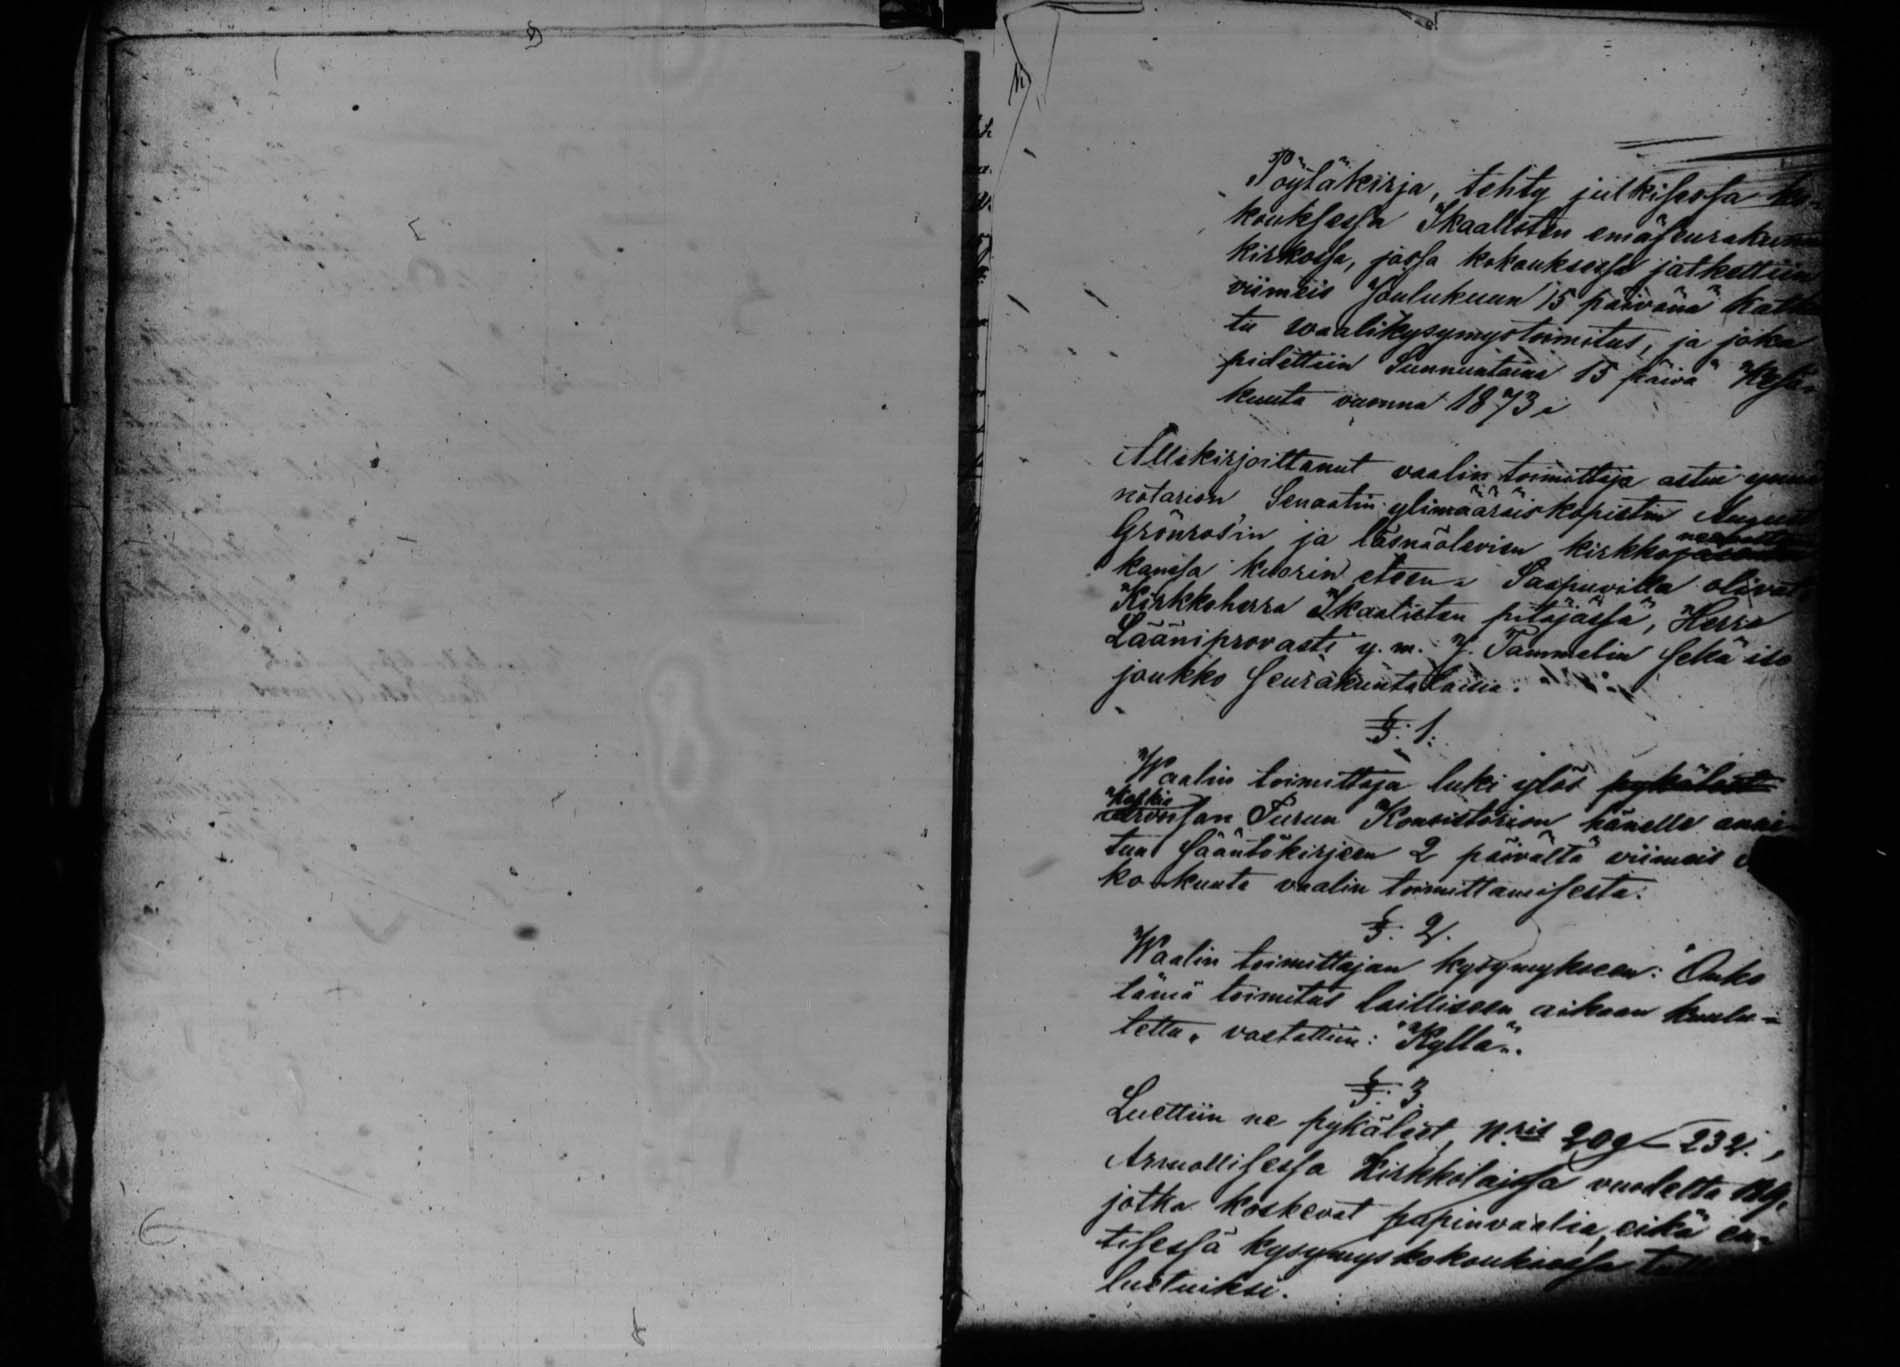 Pöytäkirja, tehty julkisessa ko-
kouksessa Ikaalisten emäseurakunnan
kirkossa, jossa kokouksessa jatkettiin
viimeis Joulukuun 15 päivänä
tu waalikysymystoimitus, ja joka
pidettiin Sunnuntaina 15 päivä Kesä-
kuuta vuonna 1873.
Allekirjoittanut vaalin toimittaja astui ynnä
notarion Senaatin ylimääräiskopistin August
Grönros'in ja läsnäolevien
kanssa kuorin eteen. Saapuvilla olivat
Kirkkoherra Ikaalisten pitäjässä, Herra
Lääniprovasti y. m. J. Tammelin sekä iso
joukko seurakuntalaisia.
§. 1.
Waalin toimittaja luki ylös
Turun Konsistorion hänelle anne-
tun sääntökirjeen 2 päivältä viimeis
ko kuuta vaalin toimittamisesta.
§. 2.
Waalin toimittajan kysymykseen: "Onko
tämä toimitus lailliseen aikaan kuulu-
tettu" vastattiin: "Kyllä".
§. 3.
Luettiin ne pykälät, N:ris 209–232,
Armollisessa Kirkkolaissa vuodelta
jotka koskevat papinvaalia, eikä en-
sisessä kysymyskokouksessa
luetuiksi.